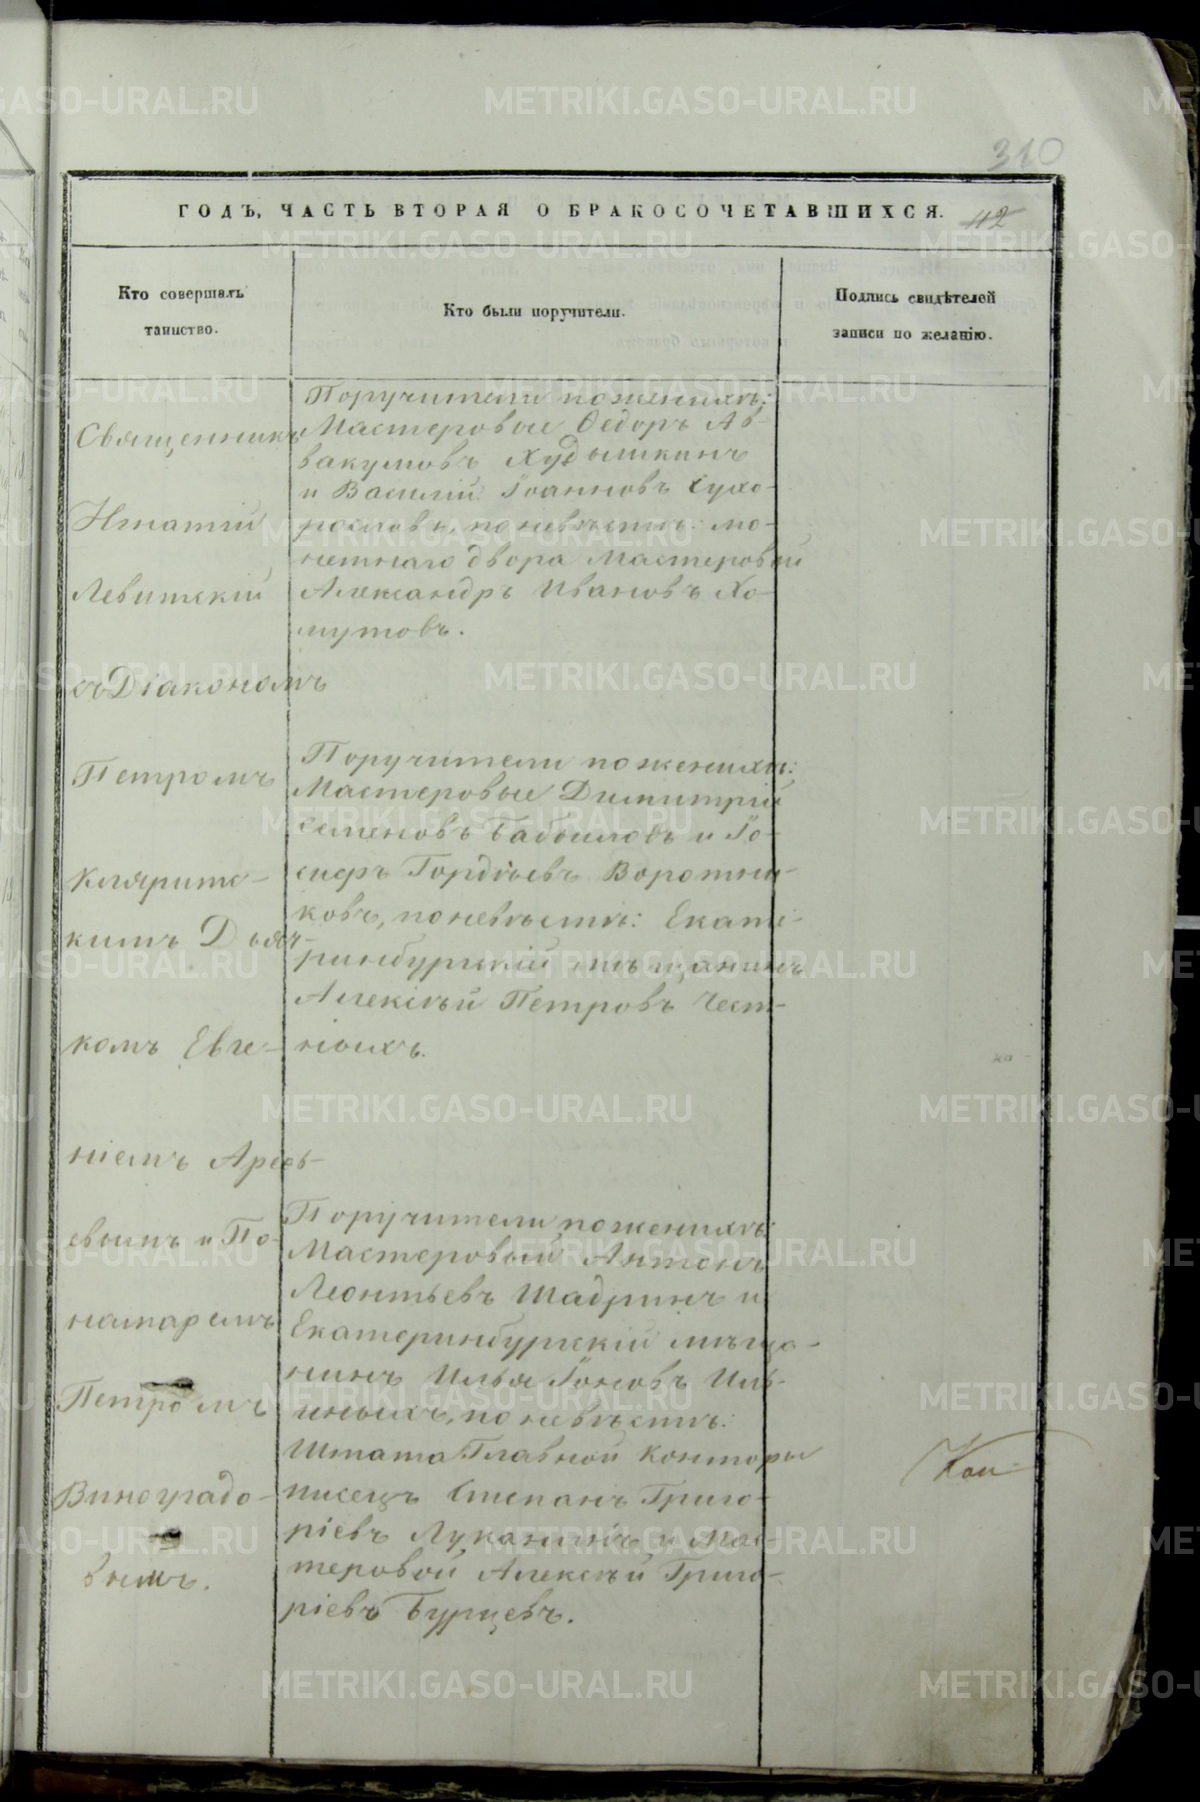 310
ГОДЪ, ЧАСТЬ ВТОРАЯ О БРАКОСОЧЕТАВШИХСЯ.
112
Кто совершалъ
таинство.
Кто были поручители.
Подпись свидѣтелей
записи по желанію.
Священникъ
Игнатій
Левитскій
съ Діакономъ
Петромъ
Клярите-
кимъ Дьяч-
комъ Евге-
ніемъ Арсень-
евымъ и По-
намаремъ
Петромъ
Виноградо-
вымъ.
Поручители по женихѣ:
Мастеровые Ѳедоръ Ав-
вакумовъ Худышкинъ
и Василій Іоанновъ Сухо-
рословъ, по невѣстѣ: мо-
нетнаго двора Мастеровый
Александръ Ивановъ Хо-
мутовъ.
Поручители по женихѣ:
Мастеровые Димитрій
Семеновъ Бабыловъ и Іо-
сифъ Гордѣевъ Воротни-
ковъ, по невѣстѣ: Екате-
ринбургскій мѣщанинъ
Алексѣй Петровъ Чест-
ныхъ.
Поручители по женихѣ:
Мастеровый Антонъ
Леонтьевъ Шадринъ и
Екатеринбургскій мѣща-
нинъ Илья Іоновъ Иль-
иныхъ, по невѣстѣ:
Штата Главной Конторы
писецъ Степанъ Григо-
ріевъ Луканинъ и Мас-
теровой Алексѣй Григо-
ріевъ Бурцевъ.
METRIKI.GASO-URAL.RU